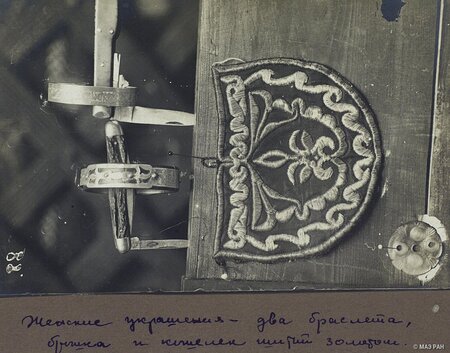 © МАЭ РАН
Женские украшения – два браслета,
брошка и кошелек шитый золотом.